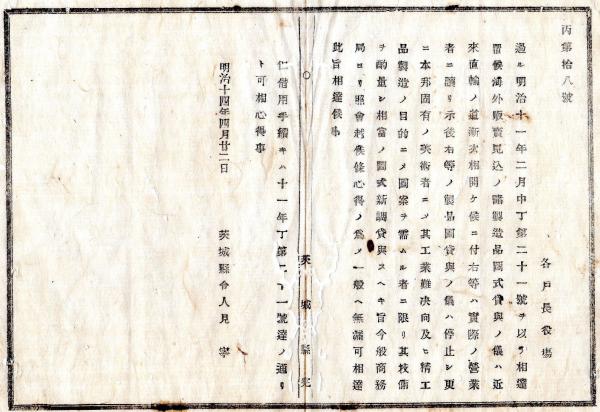 丙第拾八號
各戸長役場
過ル明治十一年二月中丁第二十一號ヲ以テ相達
置候海外販賣見込ノ諸製造品圖式貸與ノ儀ハ近
來直輸ノ道漸次相開ケ候ニ付右等ハ實際ノ營業
者ニ讓リ示後右等ノ製品圖貸與ノ儀ハ停止シ更
ニ本邦固有ノ美術者ニシテ其工業難决向及ヒ精工
品製造ノ目的ニメ圖案ヲ需ムル者ニ限リ其技倆
ヲ酌量シ相當ノ圖式新調貸與スヘキ旨今般商務
局ヨリ照會越候條心得ノ爲メ一般ヘ無漏可相達
此旨相達候事
茨城縣
仁借用手續キハ十一年丁第二十一號達ノ通リ
ト可相心得事
明治十四年四月廿二日
茨城縣令人見寧